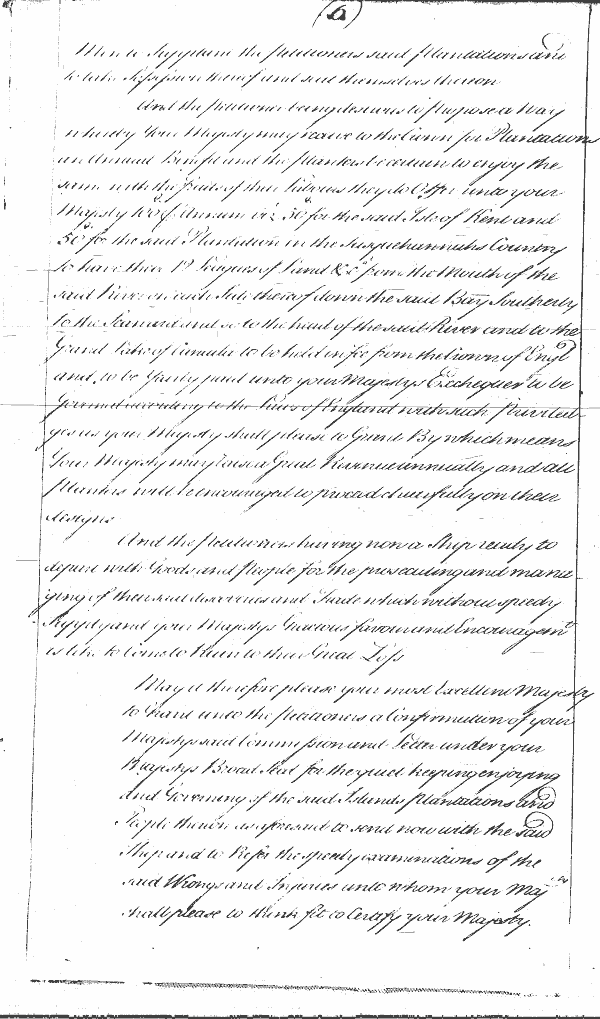 (6)
Men to Supplant the Petitioners said Plantations and
to take Possession thereof and seat themselves thereon
And the Petitioners being desirous to propose a Way
whereby Your Majesty may receive to the Crown for Plantations
an Annual Benefit and the Planters be certain to enjoy the
same with the fruits of their Labours they do Offer unto your
Majesty 100£ p Annum viz 50£ for the said Isle of Kent and
50£ for the said Plantation in the Susquehannahs Country
to have there 12 Leagues of Land &c from the Mouth of the
said River on each Side thereof down the said Bay Southerly
to the Seaward and so to the head of the said River and to the
Grand Lake of Canada to be held in fee from the Crown of Engld
and to be Yearly paid unto your Majestys Exchequer to be
Governed according to the Laws of England with such Priviled
ges as your Majesty shall please to Grant By which means
Your Majesty may raise a Great Revenue annually and all
Planters will be encouraged to proceed cheerfully on their
designs
And the Petitioners having now a Ship ready to
depart with Goods and People for the prosecuting and mana
ging of their said discoveries and Trade which without speedy
Supply and your Majestys Gracious favour and Encouragemt
is like to Come to Ruin to their Great Loss
May it therefore please your most Excellent Majesty
to Grant unto the Petitioners a Confirmation of your
Majestys said Commission and Letter under your
Majestys Broad Seal for the quiet keeping enjoying
and Governing of the said Islands Plantations and
People thereon as aforesaid to send now with the said
Ship and to Refer the speedy examinations of the
said Wrongs and Injuries unto whom your Majty
shall please to think fit to Certify your Majesty.